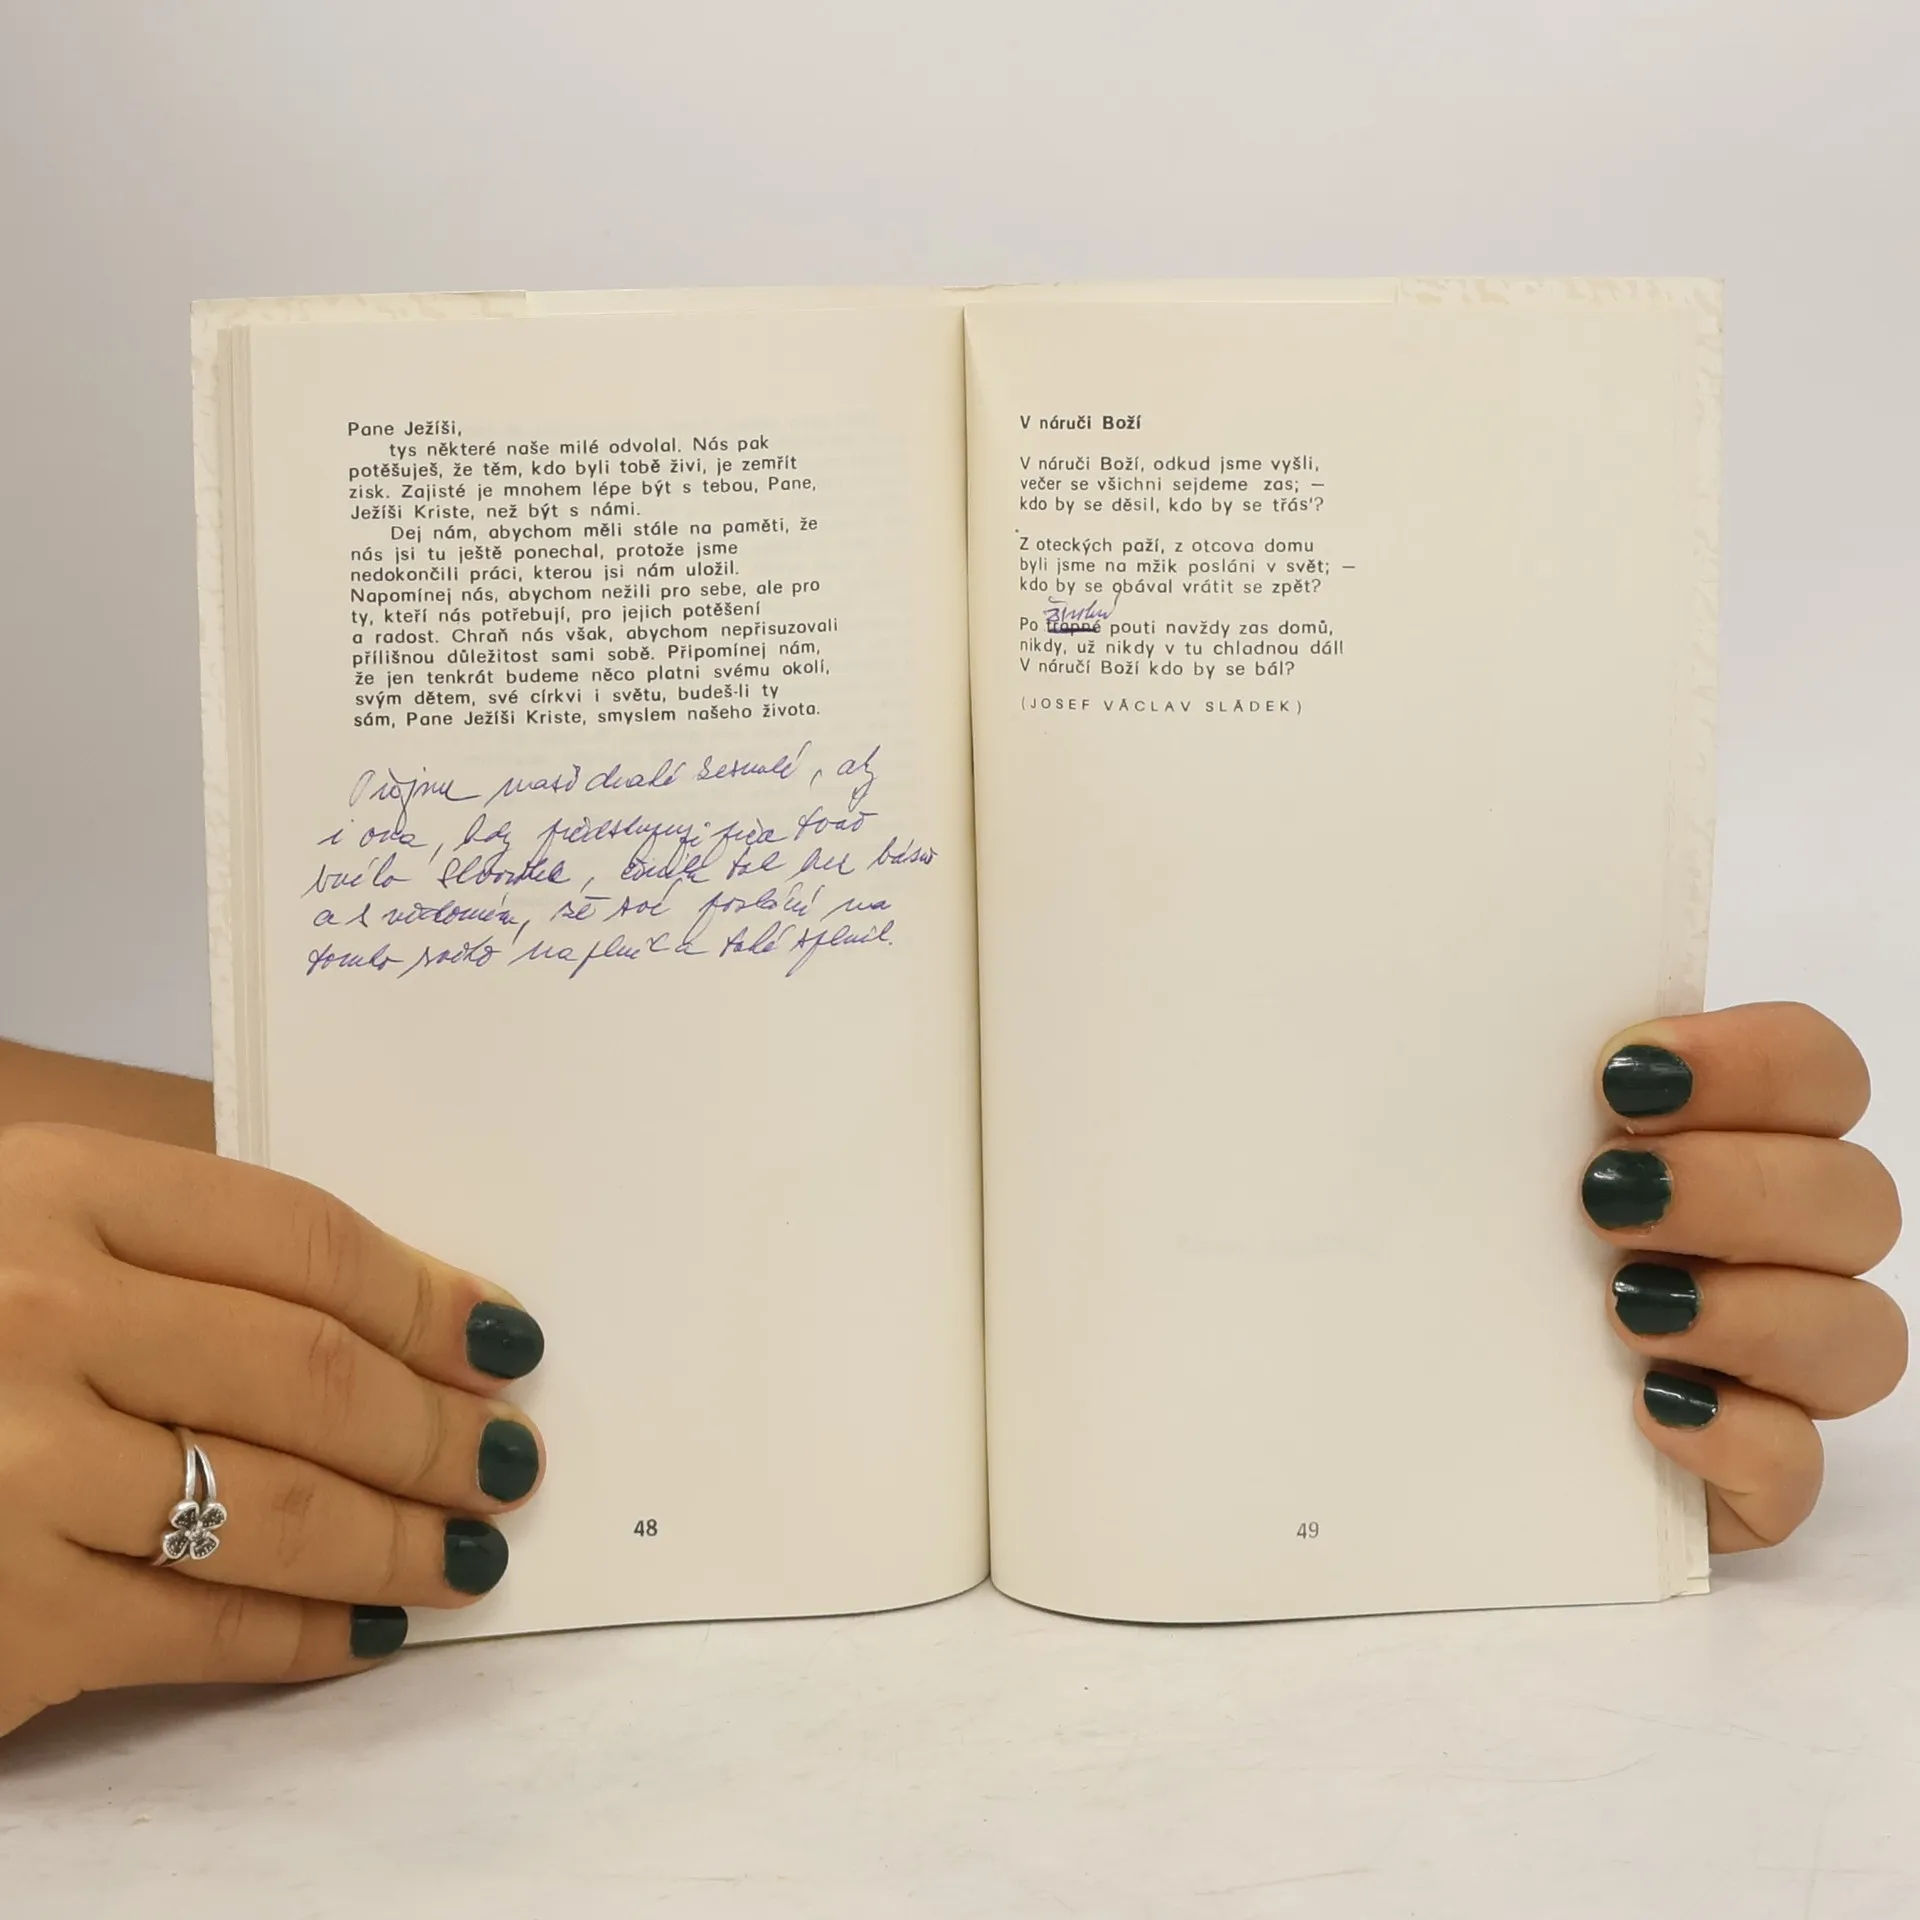 Pane Ježíši,
tys některé naše milé odvolal. Nás pak
potěšuješ, že těm, kdo byli tobě živi, je zemřít
zisk. Zajisté je mnohem lépe být s tebou, Pane,
Ježíši Kriste, než být s námi.
Dej nám, abychom měli stále na paměti, že
nás jsi tu ještě ponechal, protože jsme
nedokončili práci, kterou jsi nám uložil.
Napomínej nás, abychom nežili pro sebe, ale pro
ty, kteří nás potřebují, pro jejich potěšení
a radost. Chraň nás však, abychom nepřisuzovali
přílišnou důležitost sami sobě. Připomínej nám,
že jen tenkrát budeme něco platni svému okolí,
svým dětem, své církvi i světu, budeš-li ty
sám, Pane Ježíši Kriste, smyslem našeho života.
aby
i ona, kdy před tvář
tak bez bázně
a s vědomím, že své poslání na
tomto světě naplnila také splnil.
48
V náruči Boží
V náruči Boží, odkud jsme vyšli,
večer se všichni sejdeme zas; —
kdo by se děsil, kdo by se třás'?
Z oteckých paží, z otcova domu
byli jsme na mžik posláni v svět; —
kdo by se obával vrátit se zpět?
Po trapné pouti navždy zas domů,
nikdy, už nikdy v tu chladnou dál!
V náručí Boží kdo by se bál?
(JOSEF VÁCLAV SLÁDEK)
49